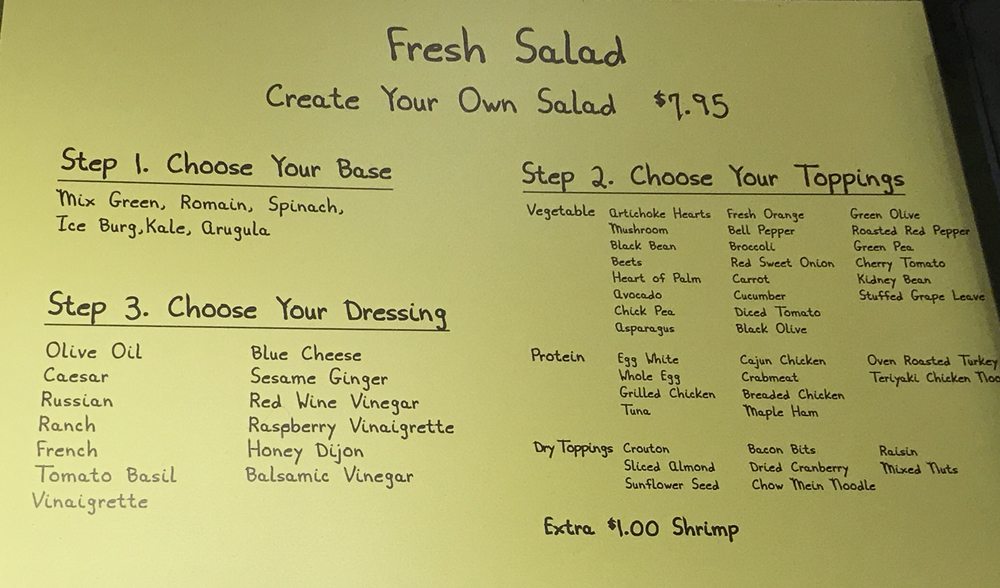 Fresh Salad
Create Your Own Salad $7.95
Step 1. Choose Your Base
Mix Green, Romain, Spinach,
Ice Burg, Kale, Arugula
Step 2. Choose Your Toppings
Vegetable Artichoke Hearts Fresh Orange Green Olive
Mushroom Bell Pepper Roasted Red Pepper
Black Bean Broccoli Green Pea
Beets Red Sweet Onion Cherry Tomato
Heart of Palm Carrot Kidney Bean
Avocado Cucumber Stuffed Grape Leave
Chick Pea Diced Tomato
Asparagus Black Olive
Protein Egg White Cajun Chicken Oven Roasted Turkey
Whole Egg Crabmeat Teriyaki Chicken
Grilled Chicken Breaded Chicken
Tuna Maple Ham
Dry Toppings Crouton Bacon Bits Raisin
Sliced Almond Dried Cranberry Mixed Nuts
Sunflower Seed Chow Mein Noodle
Extra $1.00 Shrimp
Step 3. Choose Your Dressing
Olive Oil Blue Cheese
Caesar Sesame Ginger
Russian Red Wine Vinegar
Ranch Raspberry Vinaigrette
French Honey Dijon
Tomato Basil Balsamic Vinegar
Vinaigrette